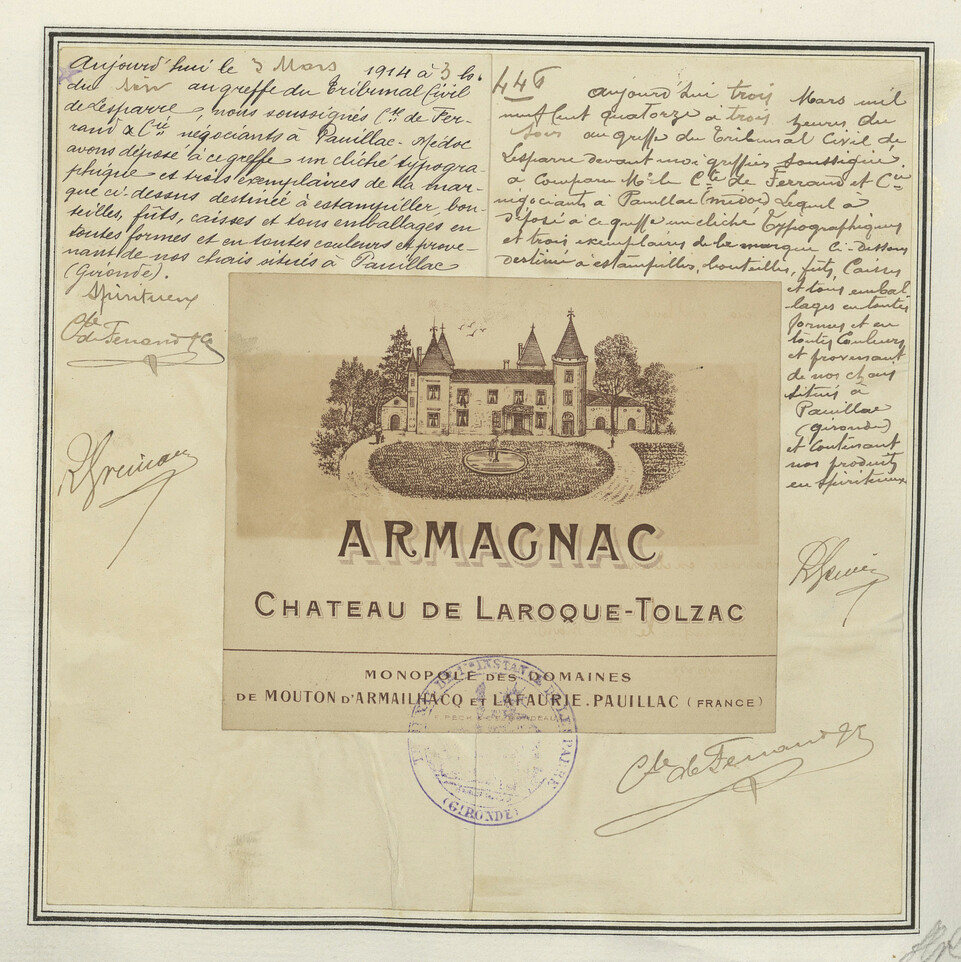 Aujourd'hui le 3 Mars 1914 à 3 h.
du soir au greffe du Tribunal Civil
de Lesparre, nous soussignés Cte de Fer-
rand & Cie négociants à Pauillac-Médoc
avons déposé à ce greffe un cliché typogra-
phique et trois exemplaires de la mar-
que ci-dessus destinée à estampiller, bou-
teilles, fûts, caisses et tous emballages en
toutes formes et en toutes couleurs et prove-
nant de nos chais situés à Pauillac
(Gironde).
Spiritueux
Cte de Ferrand & Cie
446
Aujourd'hui trois Mars mil
neuf cent quatorze à trois heures du
soir au greffe du Tribunal Civil de
Lesparre devant moi greffier soussigné
a comparu Mr le Cte de Ferrand et Cie
négociants à Pauillac (Médoc) Lequel a
déposé à ce greffe un cliché Typographique
et trois exemplaires de la marque Ci-dessous
destinée à estampilles, bouteilles, fûts, Caisses
et tous embal-
lages en toutes
formes et en
toutes Couleurs
et provenant
de nos chais
situés à
Pauillac
(gironde)
et Contenant
nos produits
en Spiritueux
ARMAGNAC
CHATEAU DE LAROQUE-TOLZAC
MONOPOLE DES DOMAINES
DE MOUTON D'ARMAILHACQ ET LAFAURIE. PAUILLAC (FRANCE)
INSTANCE
(GIRONDE)
Cte de Ferrand & Cie